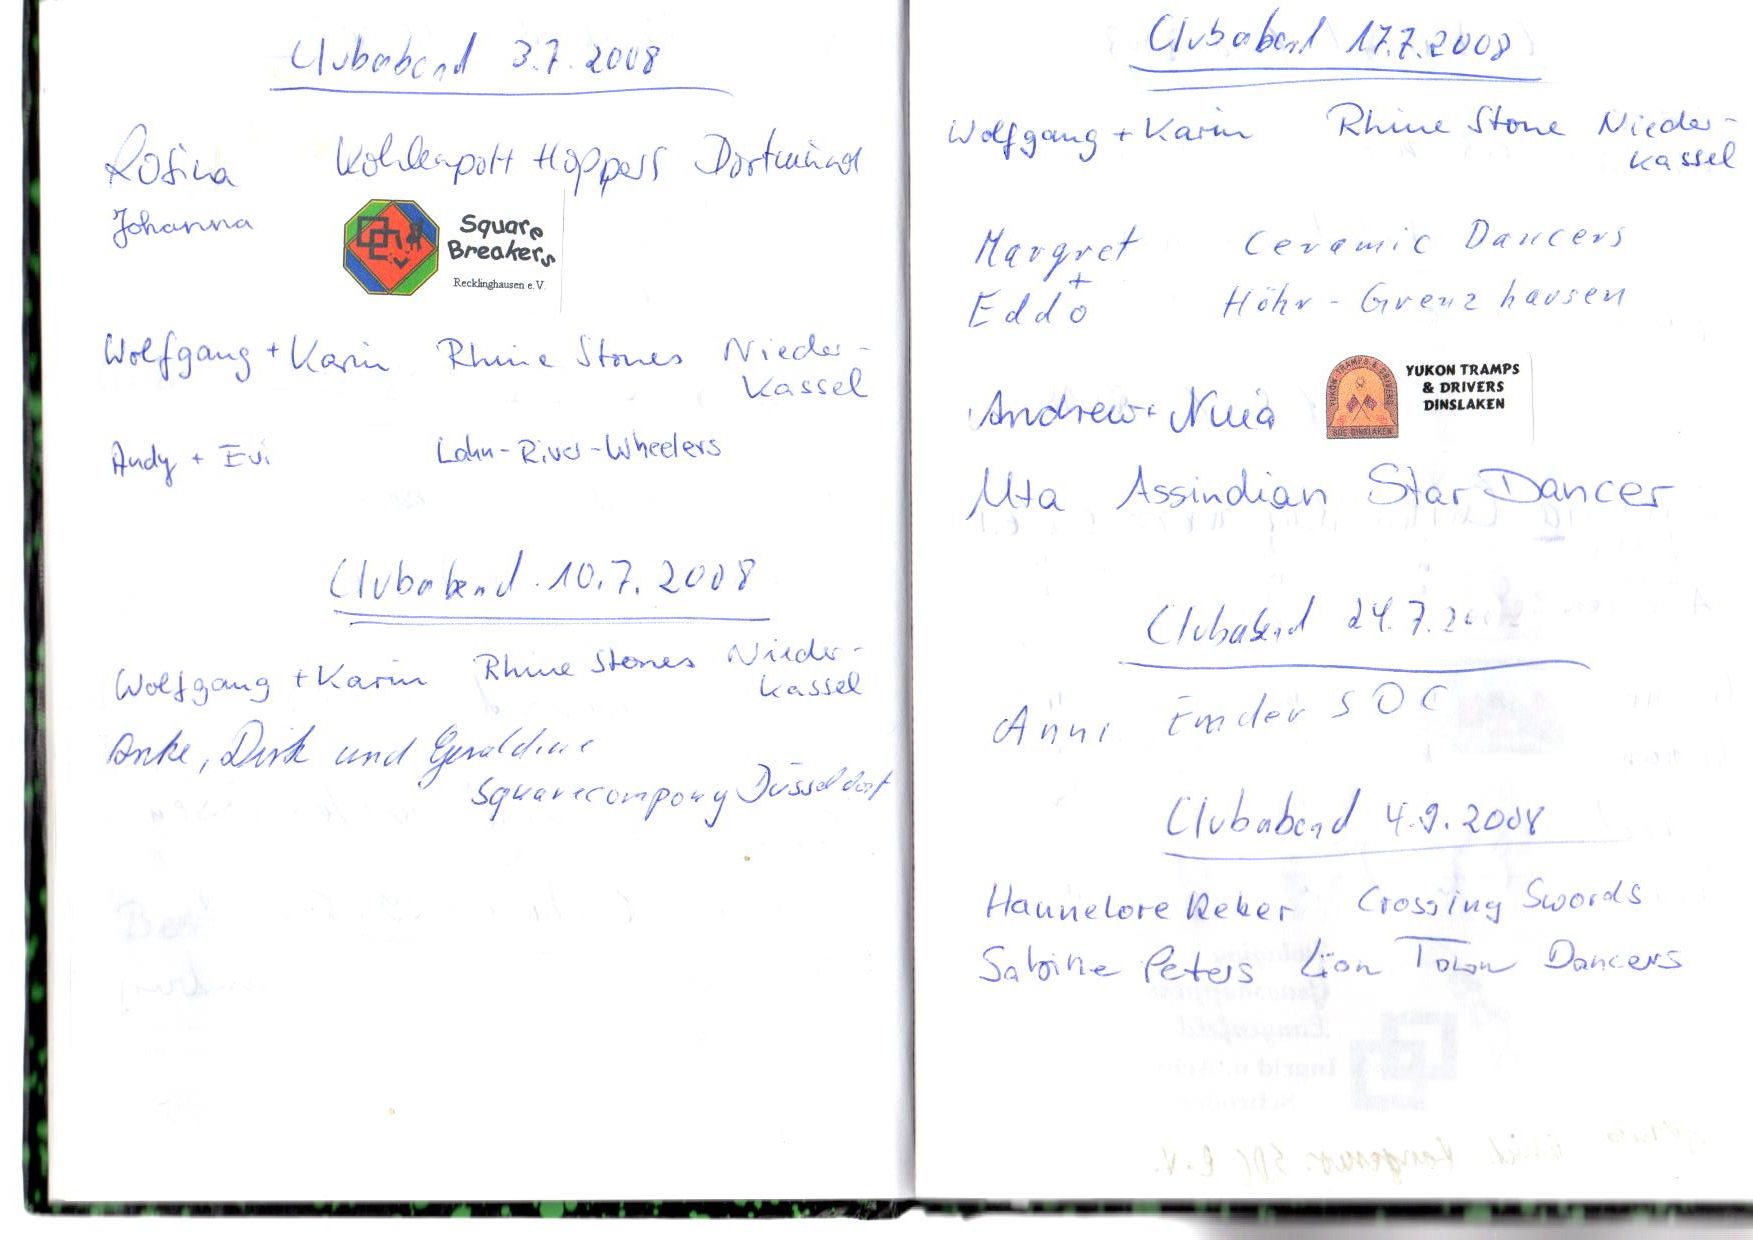 Clubabend 3.7.2008
Rosina Kohlenpott Hoppers Dortmund
Johanna
Square
Breakers
Recklinghausen e.V.
Wolfgang + Karin Rhine Stones Nieder-
kassel
Andy + Evi Lahn-River-Wheelers
Clubabend 10.7.2008
Wolfgang + Karin Rhine Stones Nieder-
kassel
Anke, Dirk und Geraldine
Squarecompany Düsseldorf
Clubabend 17.7.2008
Wolfgang + Karin Rhine Stone Nieder-
kassel
Margret Ceramic Dancers
+
Eddo Höhr-Grenzhausen
Andrew +
YUKON TRAMPS & DRIVERS
SDC DINSLAKEN
YUKON TRAMPS
& DRIVERS
DINSLAKEN
Uta Assindian Star Dancer
Clubabend 24.7.2008
Änni Emder SDC
Clubabend 4.9.2008
Hannelore Reker Crossing Swords
Sabine Peters Lion Town Dancers